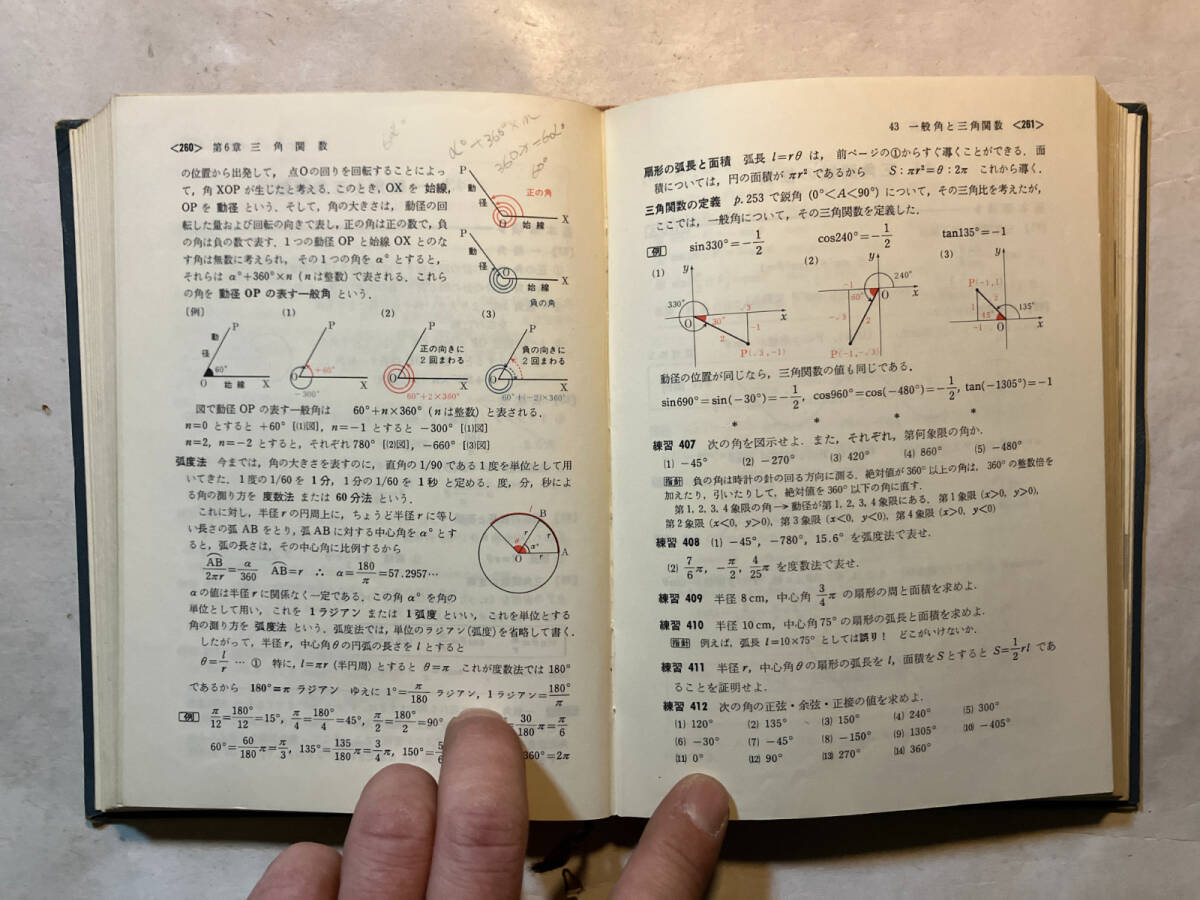 <260> 第6章 三角関数
の位置から出発して，点Oの回りを回転することによっ
て，角XOPが生じたと考える．このとき，OXを 始線，
OPを 動径 という．そして，角の大きさは，動径の回
転した量および回転の向きで表し，正の角は正の数で，負
の角は負の数で表す．1つの動径OPと始線OXとのな
す角は無数に考えられ，その1つの角をα°とすると，
それらは α°+360°×n (nは整数) で表される．これら
の角を 動径OPの表す一般角 という．
60°
α°+360°×n
360n=60°
60°
P
動径
正の角
O
始線
X
P
動径
O
始線
X
負の角
[例] (1) (2) (3)
P
動径
60°
O 始線 X
P
O
+60°
X
-300°
P
正の向きに
2回まわる
O
X
60°+2×360°
P
負の向きに
2回まわる
O
X
60°+(-2)×360°
図で動径OPの表す一般角は 60°+n×360° (nは整数) と表される．
n=0 とすると +60° [(1)図]，n=-1 とすると -300° [(1)図]
n=2, n=-2 とすると，それぞれ780° [(2)図]，-660° [(3)図]
弧度法 今までは，角の大きさを表すのに，直角の1/90である1度を単位として用
いてきた．1度の1/60を 1分，1分の1/60を 1秒 と定める．度，分，秒によ
る角の測り方を 度数法 または 60分法 という．
これに対し，半径rの円周上に，ちょうど半径rに等し
い長さの弧ABをとり，弧ABに対する中心角をα°とす
ると，弧の長さは，その中心角に比例するから
AB/2πr=α/360 AB=r ∴ α=180/π=57.2957…
l
B
r
r
θ
α°
O
r
A
αの値は半径rに関係なく一定である．この角α°を角の
単位として用い，これを 1ラジアン または 1弧度 といい，これを単位とする
角の測り方を 弧度法 という．弧度法では，単位のラジアン(弧度)を省略して書く．
したがって，半径r，中心角θの円弧の長さをlとすると
θ=l/r … ① 特に，l=πr (半円周) とすると θ=π これが度数法では 180°
であるから 180°=π ラジアン ゆえに 1°=π/180 ラジアン，1ラジアン=180°/π
[例] π/12=180°/12=15°, π/4=180°/4=45°, π/2=180°/2=90° 30/180π=π/6
60°=60/180π=π/3, 135°=135/180π=3/4π, 150°= 360°=2π
43 一般角と三角関数 <261>
扇形の弧長と面積 弧長 l=rθ は，前ページの①からすぐ導くことができる．面
積については，円の面積が πr² であるから S:πr²=θ:2π これから導く．
三角関数の定義 p.253で鋭角 (0°<A<90°) について，その三角比を考えたが，
ここでは，一般角について，その三角関数を定義した．
[例] sin330°=-1/2 cos240°=-1/2 tan135°=-1
(1) (2) (3)
y
330°
O
30°
√3
x
-1
2
P(√3,-1)
y
240°
-1
60°
O
x
-√3
2
P(-1,-√3)
y
P(-1,1)
135°
45°
-1
O
x
動径の位置が同じなら，三角関数の値も同じである．
sin690°=sin(-30°)=-1/2, cos960°=cos(-480°)=-1/2, tan(-1305°)=-1
* * * *
練習 407 次の角を図示せよ．また，それぞれ，第何象限の角か．
(1) -45° (2) -270° (3) 420° (4) 860° (5) -480°
[指針] 負の角は時計の針の回る方向に測る．絶対値が360°以上の角は，360°の整数倍を
加えたり，引いたりして，絶対値を360°以下の角に直す．
第1, 2, 3, 4象限の角→動径が第1, 2, 3, 4象限にある．第1象限 (x>0, y>0),
第2象限 (x<0, y>0), 第3象限 (x<0, y<0), 第4象限 (x>0, y<0)
練習 408 (1) -45°, -780°, 15.6° を弧度法で表せ．
(2) 7/6π, -π/2, 4/25π を度数法で表せ．
練習 409 半径 8cm, 中心角 3/4π の扇形の周と面積を求めよ．
練習 410 半径 10cm, 中心角75°の扇形の弧長と面積を求めよ．
[指針] 例えば，弧長 l=10×75° としては誤り！ どこがいけないか．
練習 411 半径r，中心角θの扇形の弧長をl，面積をSとすると S=1/2rl であ
ることを証明せよ．
練習 412 次の角の正弦・余弦・正接の値を求めよ．
(1) 120° (2) 135° (3) 150° (4) 240° (5) 300°
(6) -30° (7) -45° (8) -150° (9) 1305° (10) -405°
(11) 0° (12) 90° (13) 270° (14) 360°